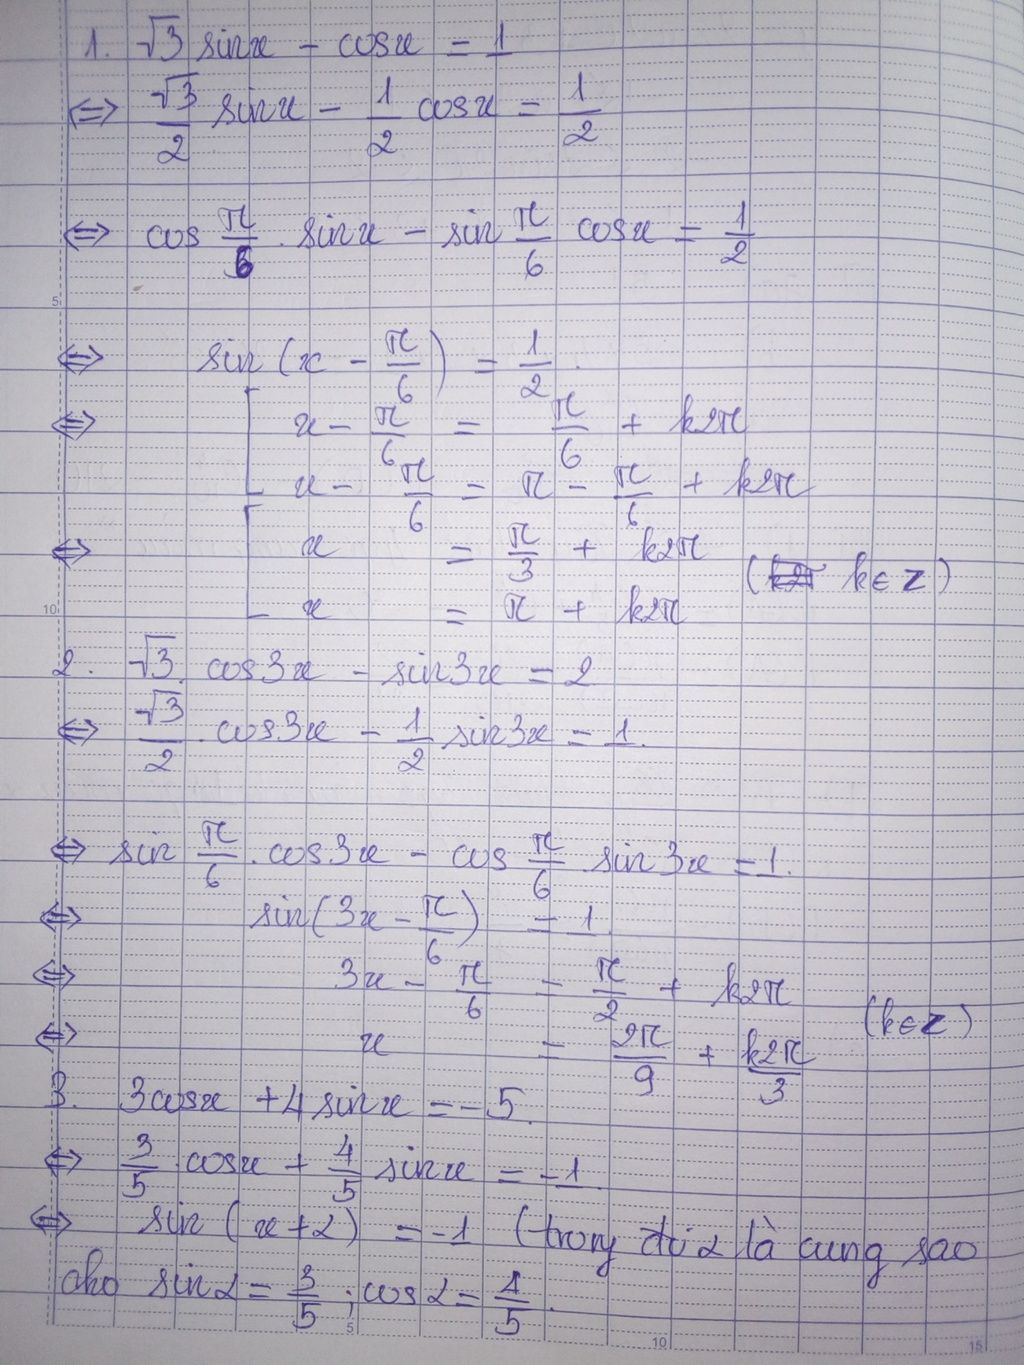 1. √3 sinx - cosx = 1
⇔ √3/2 sinx - 1/2 cosx = 1/2
⇔ cos π/6 . sinx - sin π/6 cosx = 1/2
⇔ sin(x - π/6) = 1/2.
⇔ [ x - π/6 = π/6 + k2π
x - π/6 = π - π/6 + k2π
⇔ [ x = π/3 + k2π
(k∈Z)
x = π + k2π
2. √3. cos3x - sin3x = 2
⇔ √3/2 . cos3x - 1/2 sin3x = 1.
⇔ sin π/6 . cos3x - cos π/6 sin3x = 1.
⇔ sin(3x - π/6) = 1.
⇔ 3x - π/6 = π/2 + k2π
(k∈Z)
⇔ x = 2π/9 + k2π/3
3. 3cosx + 4sinx = -5.
⇔ 3/5 cosx + 4/5 sinx = -1.
⇔ sin(x+α) = -1 (trong đó α là cung sao
cho sinα = 3/5 ; cosα = 4/5.
5
10
5
10
15